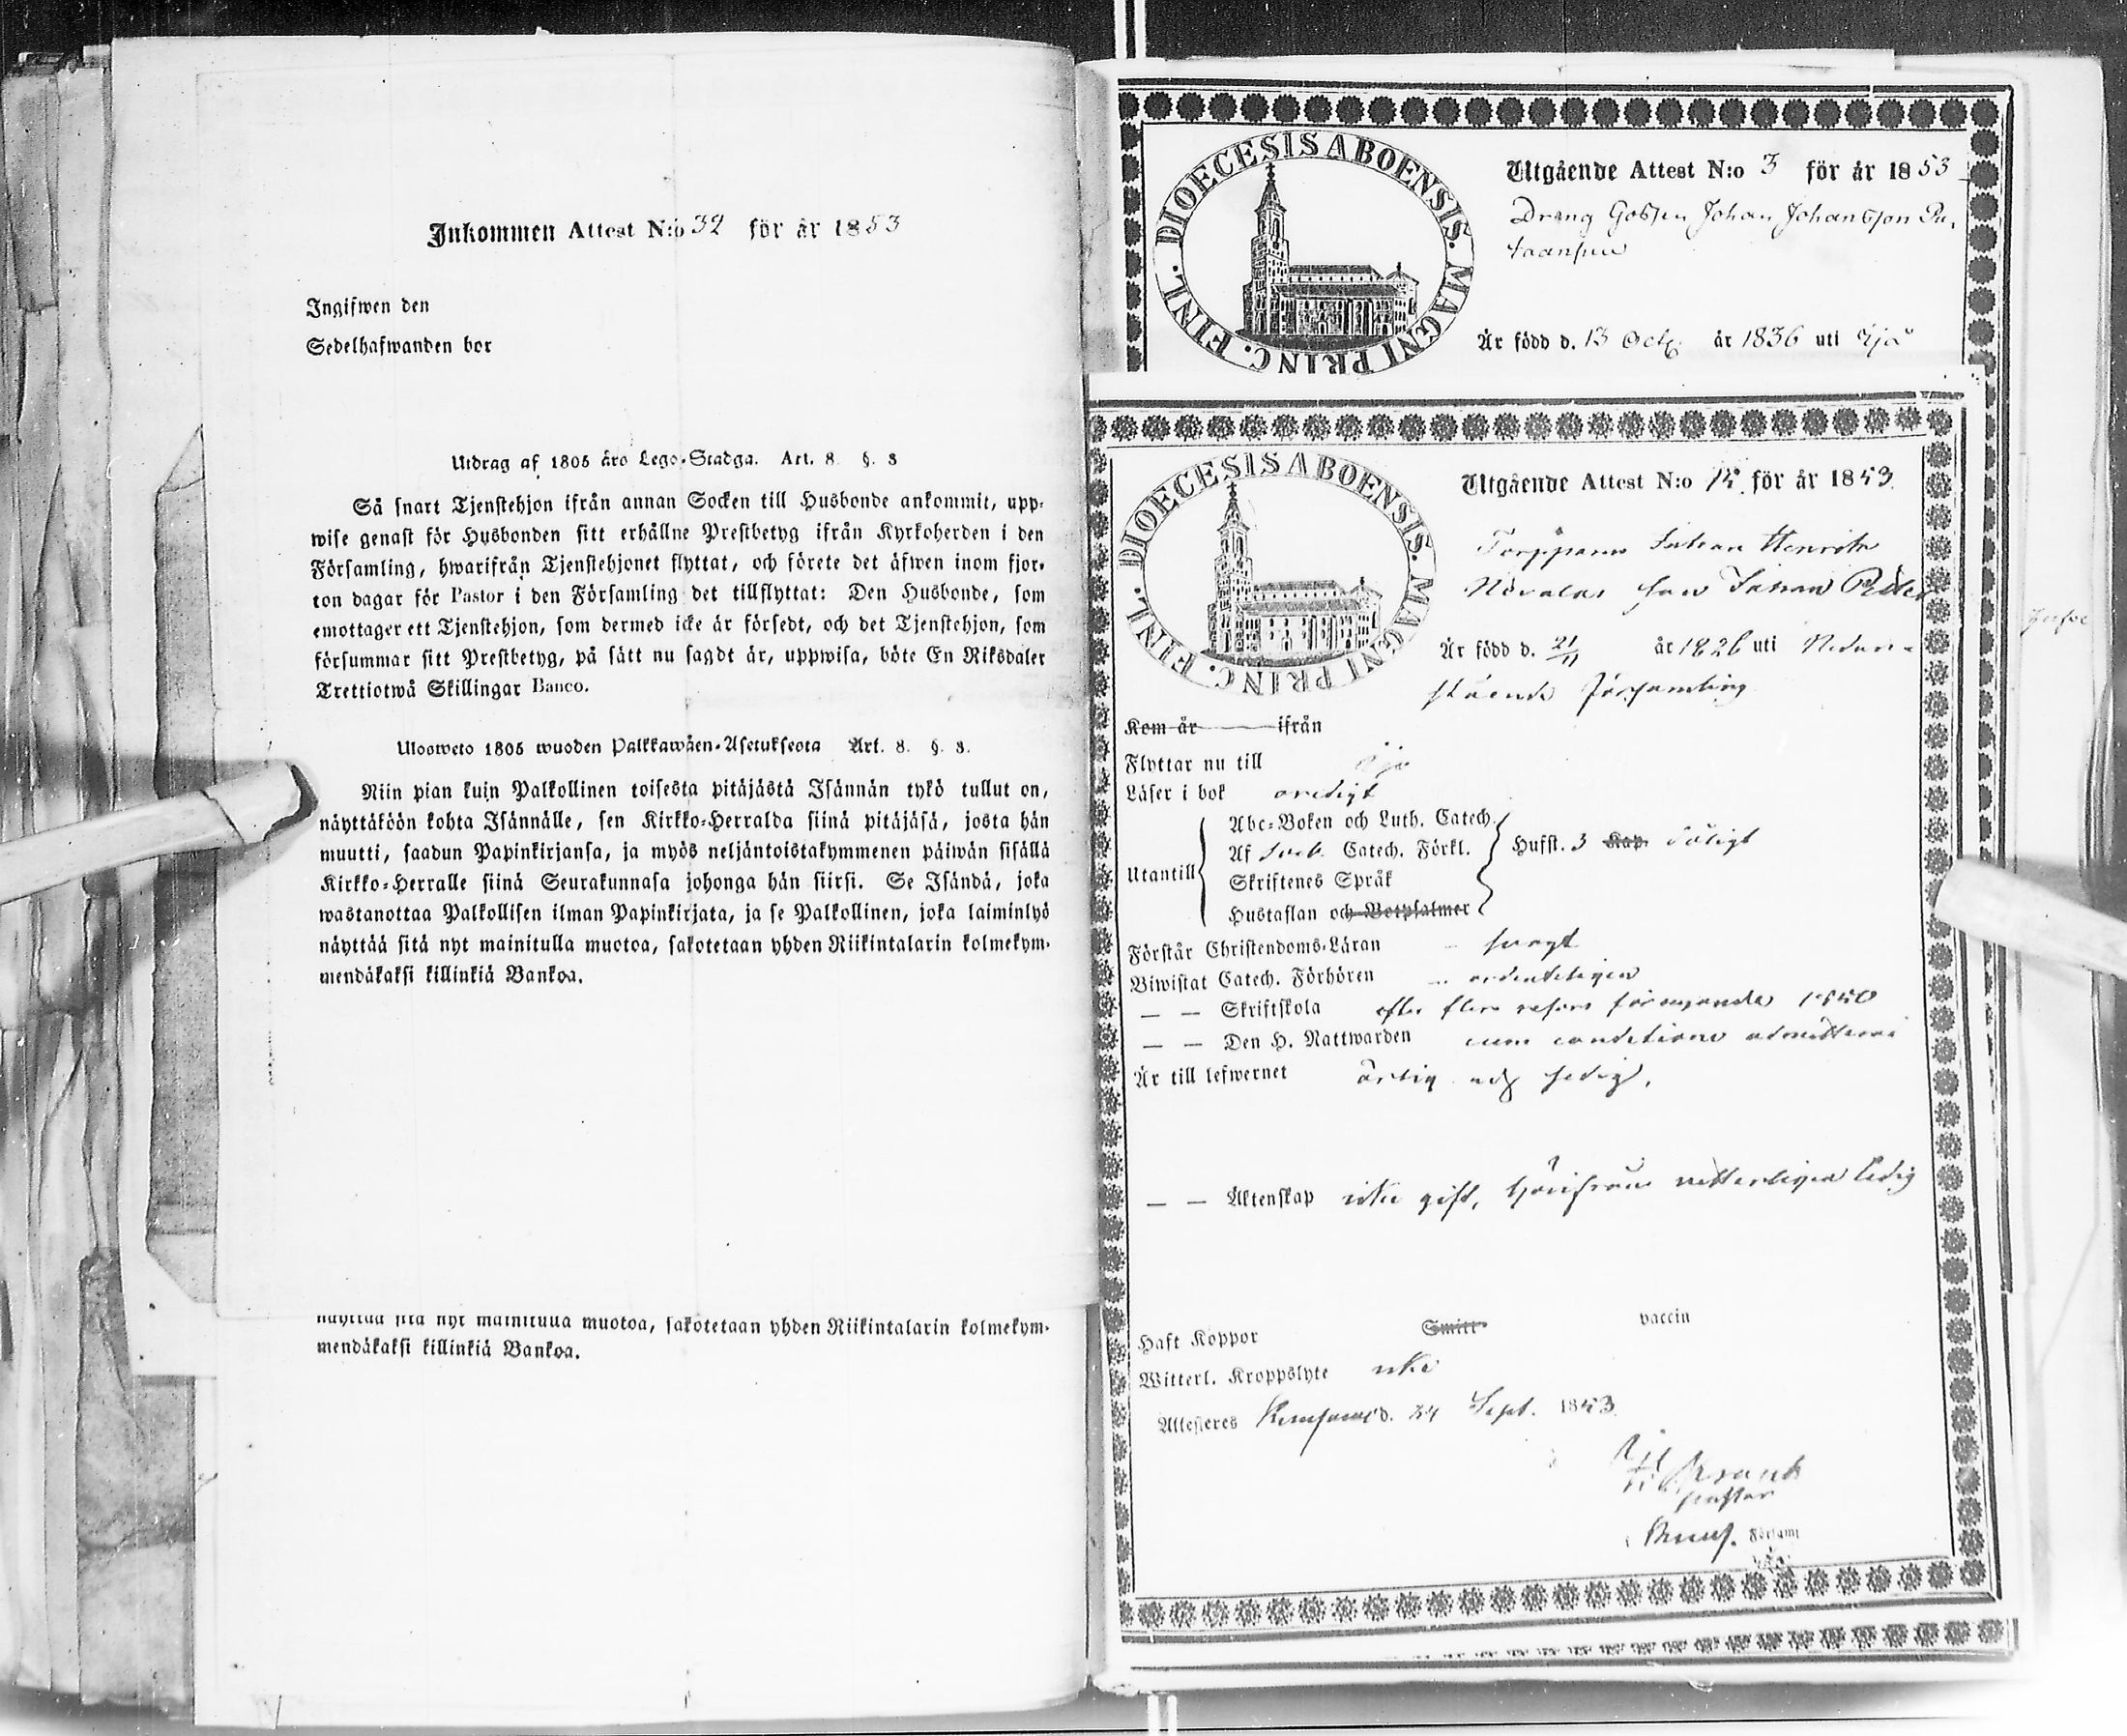 Inkommen Attest N:o 32 för år 1853
Ingifwen den
Sedelhafwanden bor
Utdrag af 1805 års Lego-Stadga. Art. 8 §. 3
Så snart Tjenstehjon ifrån annan Socken till Husbonde ankommit, upp-
wise genast för Husbonden sitt erhållne Prestbetyg ifrån Kyrkoherden i den
Församling, hwarifrån Tjenstehjonet flyttat, och förete det äfwen inom fjor-
ton dagar för Pastor i den Församling det tillflyttat: Den Husbonde, som
emottager ett Tjenstehjon, som dermed icke är försedt, och det Tjenstehjon, som
försummar sitt Prestbetyg, på sätt nu sagdt är, uppwisa, böte En Riksdaler
Trettiotwå Skillingar Banco.
Ulosweto 1805 wuoden Palkkawäen-Asetuksesta Art. 8. §. 3.
Niin pian kuin Palkollinen toisesta pitäjästä Isännän tykö tullut on,
näyttäköön kohta Isännälle, sen Kirkko-Herralda siinä pitäjäsä, josta hän
muutti, saadun Papinkirjansa, ja myös neljäntoistakymmenen päiwän sisällä
Kirkko-Herralle siinä Seurakunnasa johonga hän siirsi. Se Isändä, joka
wastanottaa Palkollisen ilman Papinkirjata, ja se Palkollinen, joka laiminlyö
näyttää sitä nyt mainitulla muotoa, sakotetaan yhden Riikintalarin kolmekym-
mendäkaksi killinkiä Bankoa.
näyttää sitä nyt mainitulla muotoa, sakotetaan yhden Riikintalarin kolmekym-
mendäkaksi killinkiä Bankoa.
DIOECESIS ABOENSIS. MAGNI PRINC. FINL.
Utgående Attest N:o 3 för år 1853
Dräng Gossen Johan Johansson
Är född d. 13 Oct. år 1836 uti Ypä
DIOECESIS ABOENSIS. MAGNI PRINC. FINL.
Utgående Attest N:o för år 1853
Torpparen Johan Henrik
son Johan Petter
Är född d. 21/11 år 1826 uti Nedan-
stående församling
Kom år ifrån
Flyttar nu till
Läser i bok
Utantill
Abc-Boken och Luth. Catech.
Af Catech. Förkl.
Skriftenes Språk
Hustaflan och Botpsalmer
Hufst. 3 Kap.
Förstår Christendoms-Läran svagt
Biwistat Catech. Förhören ordenteligen
— — Skriftskola efter flera 1850
— — Den H. Nattwarden cum conditione
Är till lefwernet ärlig och sedig.
— — Äktenskap icke gift, härifrån ledig
Haft Koppor Smitt- vaccin
Witterl. Kroppslyte icke
Attesteras d. 24 Sept. 1853
pastor
Församl